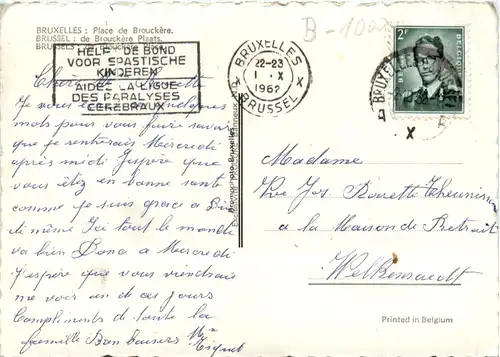 BRUXELLES : Place de Brouckère.
BRUSSEL : de Brouckère Plaats.
BRUSSELS
B-1000
HELP DE BOND
VOOR SPASTISCHE
KINDEREN
AIDEZ LA LIGUE
DES PARALYSES
CEREBRAUX
BRUXELLES
22-23
1 X
1962
BRUSSEL
2F
BELGIQUE
BRUXELLES
X
Chère
Je vous quelques
mots pour vous faire savoir
que je rentrerais Mercredi
après midi J'espère que
vous êtez en bonne santé
comme je suis grace a Dieu
di même Ici tout le monde
va bien Dona a Mercredi
J'espère que vous viendrais
me voir un de ces jours
Compliments de toute la
famille Bon baisers
Madame
Vve Jos. Theunissen
a la Maison de Retrait
Welkenraedt
Printed in Belgium